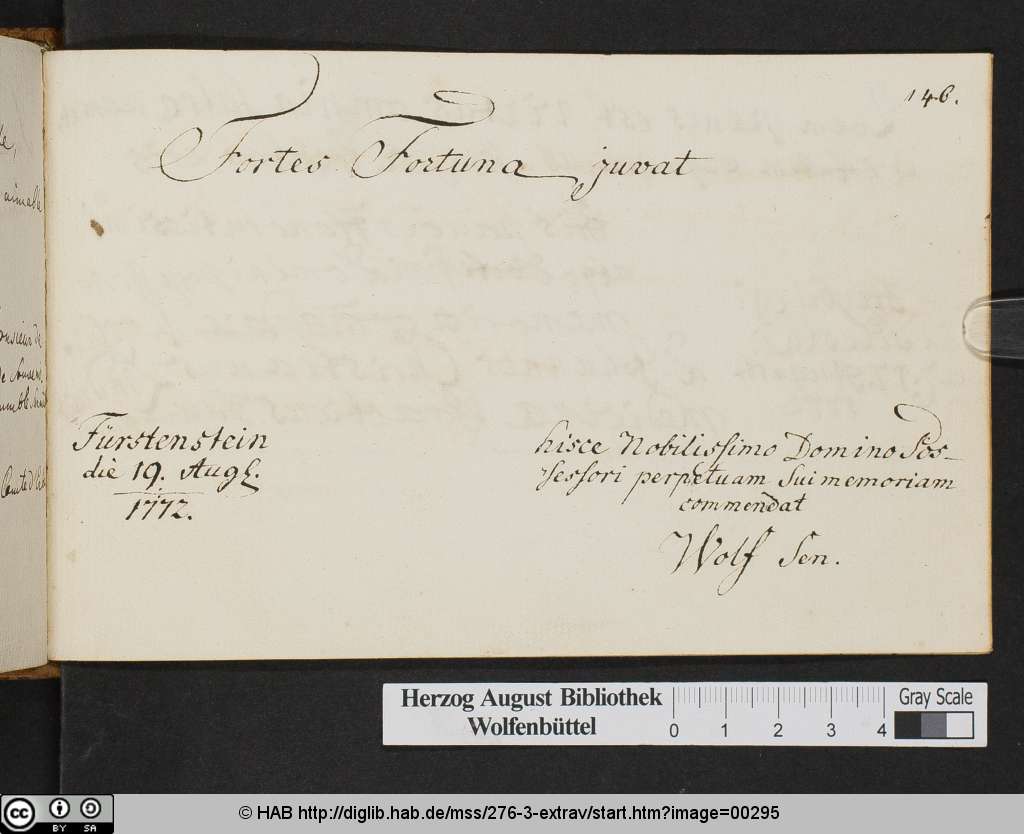 146.
Fortes Fortuna juvat
Fürstenstein
die 19. Aug.
1772.
hisce Nobilissimo Domino Pos-
sessori perpetuam Sui memoriam
commendat
Wolf Sen.
aimable
Herzog August Bibliothek
Wolfenbüttel
0 1 2 3 4
Gray Scale
cc BY SA
© HAB http://diglib.hab.de/mss/276-3-extrav/start.htm?image=00295